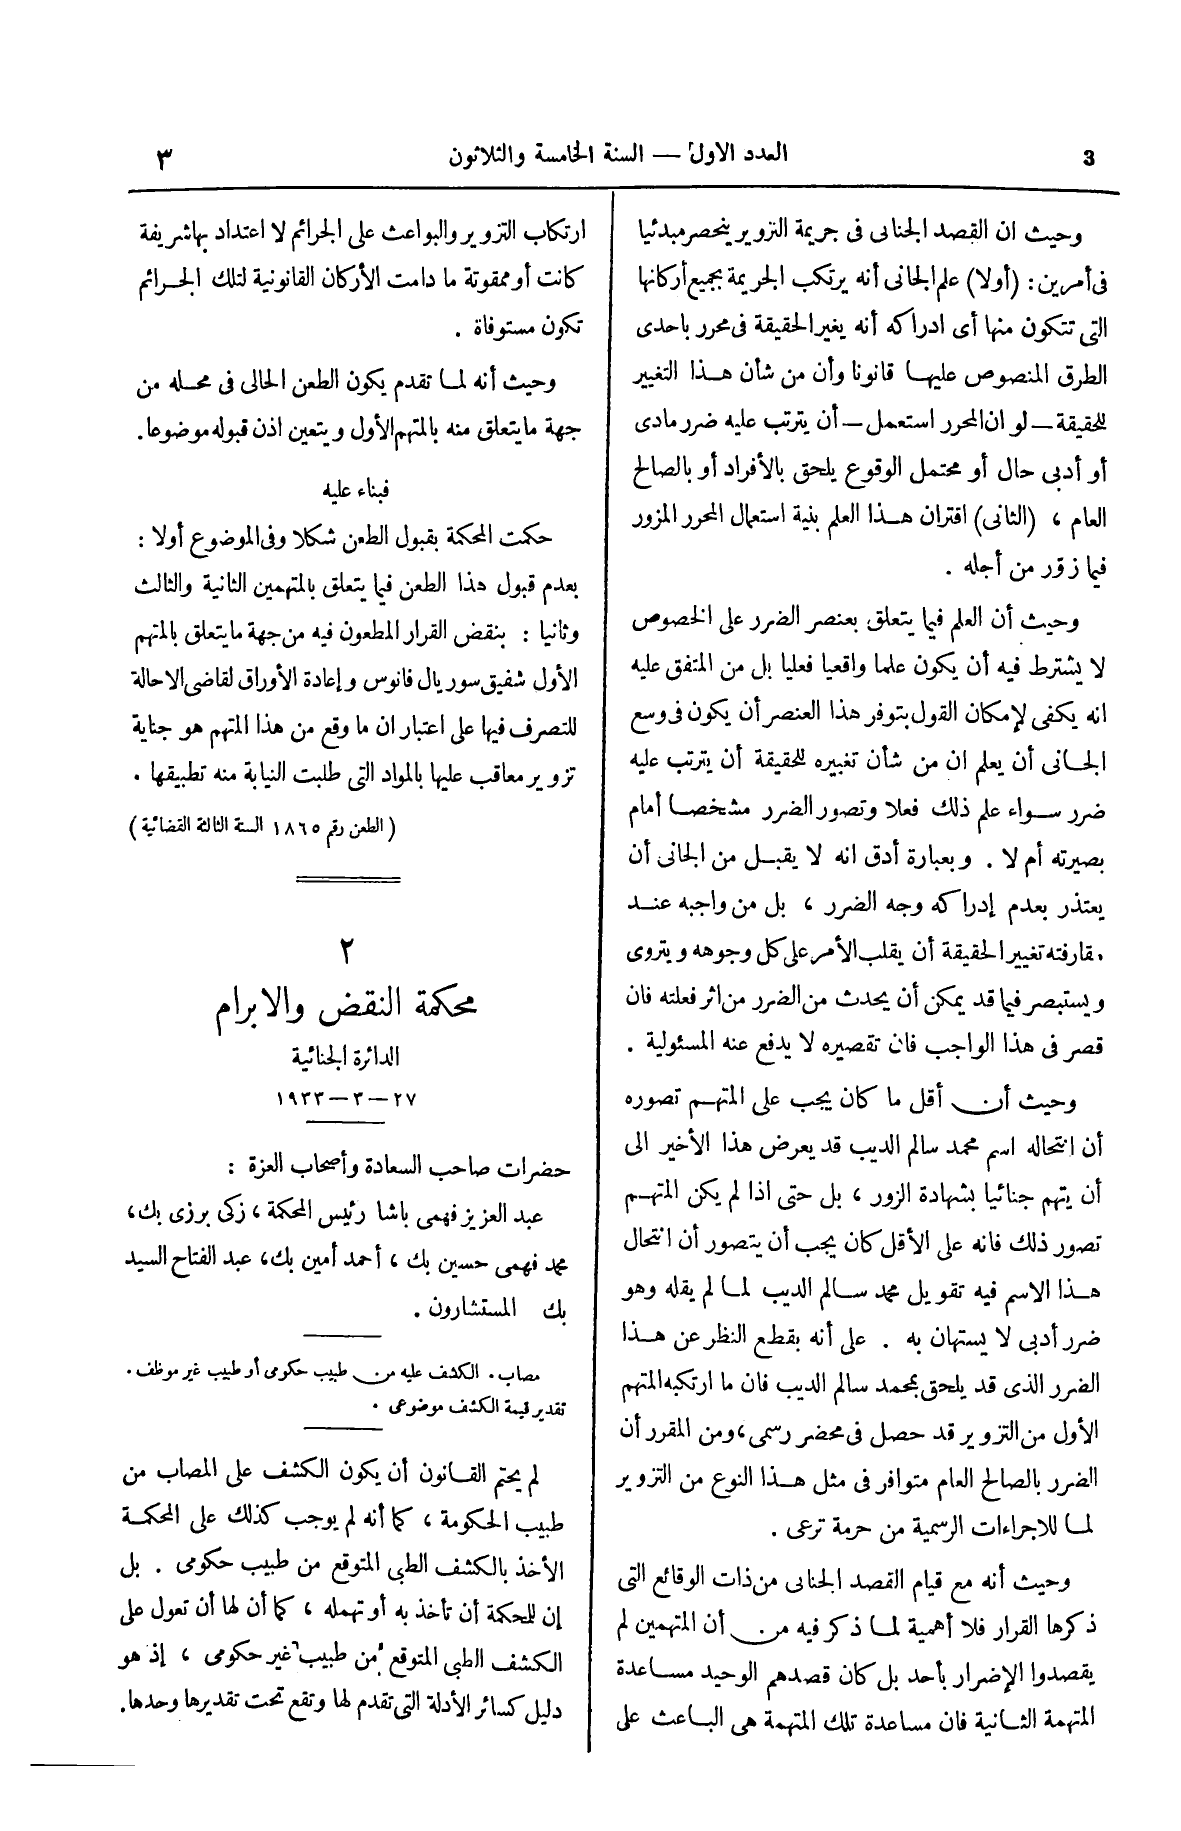 3 العدد الاول — السنة الخامسة والثلاثون ٣
وحيث ان القصد الجنائى فى جريمة التزوير ينحصر مبدئيا
فى أمرين : (أولا) علم الجانى أنه يرتكب الجريمة بجميع أركانها
التى تتكون منها أى ادراكه أنه يغير الحقيقة فى محرر باحدى
الطرق المنصوص عليها قانونا وأن من شأن هذا التغيير
للحقيقة — لو ان المحرر استعمل — أن يترتب عليه ضرر مادى
أو أدبى حال أو محتمل الوقوع يلحق بالأفراد أو بالصالح
العام ، (الثانى) اقتران هذا العلم بنية استعمال المحرر المزور
فيما زور من أجله .
وحيث أن العلم فيما يتعلق بعنصر الضرر على الخصوص
لا يشترط فيه أن يكون علما واقعيا فعليا بل من المتفق عليه
انه يكفى لإمكان القول بتوفر هذا العنصر أن يكون فى وسع
الجانى أن يعلم ان من شأن تغييره للحقيقة أن يترتب عليه
ضرر سواء علم ذلك فعلا وتصور الضرر مشخصا أمام
بصيرته أم لا . وبعبارة أدق انه لا يقبل من الجانى أن
يعتذر بعدم إدراكه وجه الضرر ، بل من واجبه عند
مقارفته تغيير الحقيقة أن يقلب الأمر على كل وجوهه ويتروى
ويستبصر فيما قد يمكن أن يحدث من الضرر من اثر فعلته فان
قصر فى هذا الواجب فان تقصيره لا يدفع عنه المسئولية .
وحيث أن أقل ما كان يجب على المتهم تصوره
أن انتحاله اسم محمد سالم الديب قد يعرض هذا الأخير الى
أن يتهم جنائيا بشهادة الزور ، بل حتى اذا لم يكن المتهم
تصور ذلك فانه على الأقل كان يجب أن يتصور أن انتحال
هذا الاسم فيه تقويل محمد سالم الديب لما لم يقله وهو
ضرر أدبى لا يستهان به . على أنه بقطع النظر عن هذا
الضرر الذى قد يلحق بمحمد سالم الديب فان ما ارتكبه المتهم
الأول من التزوير قد حصل فى محضر رسمى، ومن المقرر أن
الضرر بالصالح العام متوافر فى مثل هذا النوع من التزوير
لما للاجراءات الرسمية من حرمة ترعى .
وحيث أنه مع قيام القصد الجنائى من ذات الوقائع التى
ذكرها القرار فلا أهمية لما ذكر فيه من أن المتهمين لم
يقصدوا الإضرار بأحد بل كان قصدهم الوحيد مساعدة
المتهمة الثانية فان مساعدة تلك المتهمة هى الباعث على
ارتكاب التزوير والبواعث على الجرائم لا اعتداد بها شريفة
كانت أو ممقوتة ما دامت الأركان القانونية لتلك الجرائم
تكون مستوفاة .
وحيث أنه لما تقدم يكون الطعن الحالى فى محله من
جهة ما يتعلق منه بالمتهم الأول ويتعين اذن قبوله موضوعا.
فبناء عليه
حكمت المحكمة بقبول الطعن شكلا وفى الموضوع أولا :
بعدم قبول هذا الطعن فيما يتعلق بالمتهمين الثانية والثالث
وثانيا : بنقض القرار المطعون فيه من جهة ما يتعلق بالمتهم
الأول شفيق سوريال فانوس وإعادة الأوراق لقاضى الاحالة
للتصرف فيها على اعتبار ان ما وقع من هذا المتهم هو جناية
تزوير معاقب عليها بالمواد التى طلبت النيابة منه تطبيقها .
( الطعن رقم ١٨٦٥ السنة الثالثة القضائية )
٢
محكمة النقض والابرام
الدائرة الجنائية
٢٧ — ٣ — ١٩٣٣
حضرات صاحب السعادة وأصحاب العزة :
عبد العزيز فهمى باشا رئيس المحكمة ، زكى برزى بك،
محمد فهمى حسين بك ، أحمد أمين بك، عبد الفتاح السيد
بك المستشارون .
مصاب. الكشف عليه من طبيب حكومى أو طبيب غير موظف.
تقدير قيمة الكشف موضوعى .
لم يحتم القانون أن يكون الكشف على المصاب من
طبيب الحكومة ، كما أنه لم يوجب كذلك على المحكمة
الأخذ بالكشف الطبى المتوقع من طبيب حكومى . بل
إن للمحكمة أن تأخذ به أو تهمله ، كما أن لها أن تعول على
الكشف الطبى المتوقع من طبيب غير حكومى ، إذ هو
دليل كسائر الأدلة التى تقدم لها وتقع تحت تقديرها وحدها.